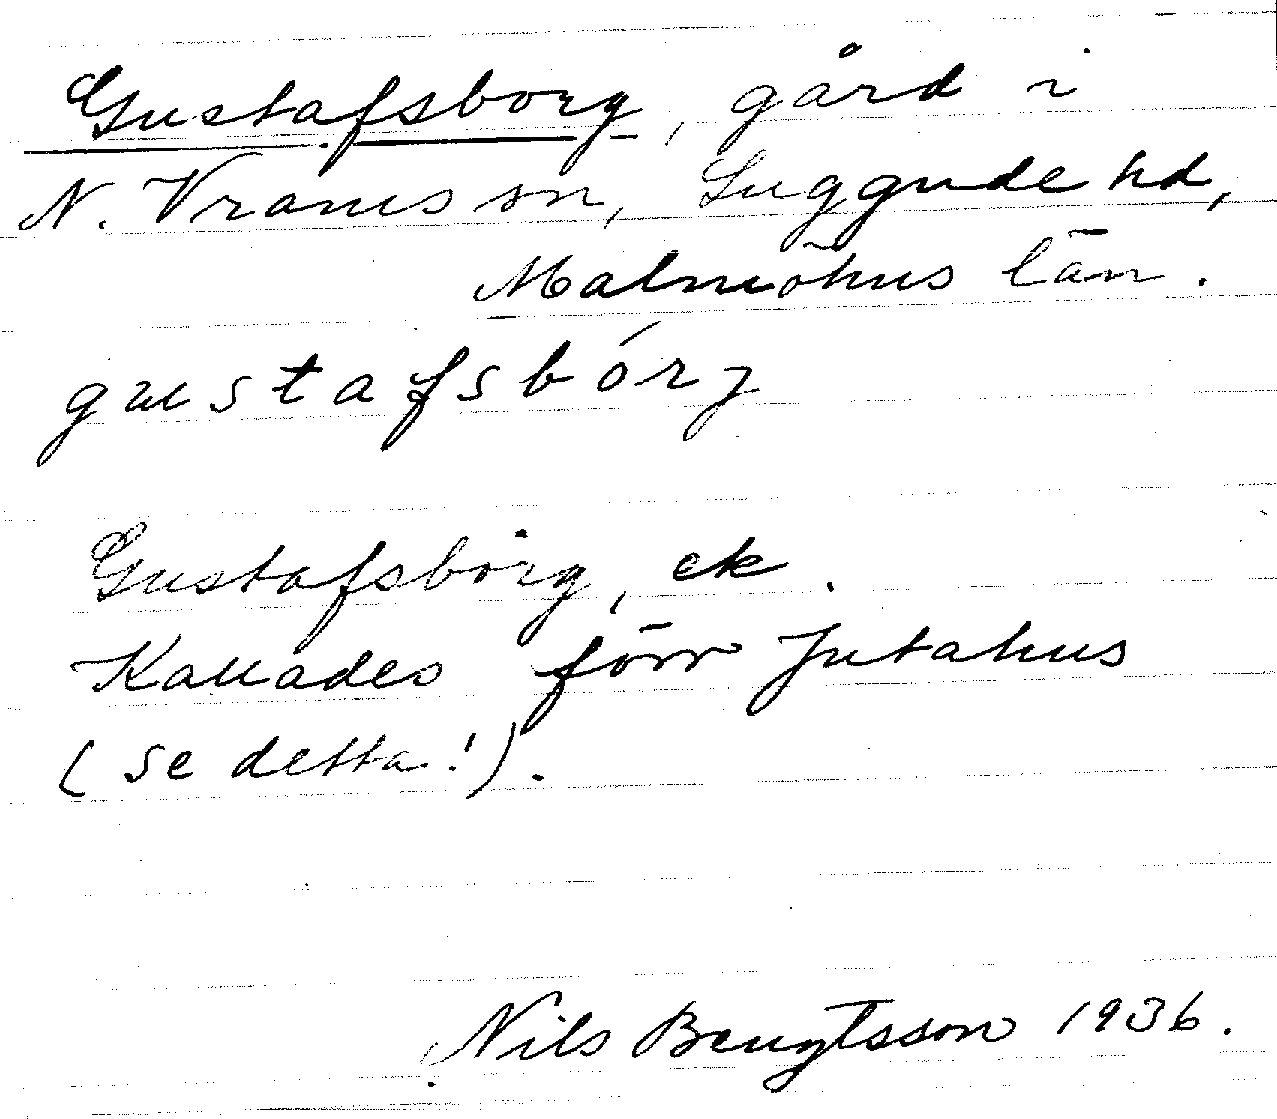 Gustafsborg, gård i
N. Vrams sn, Luggude hd,
Malmöhus län.
gustafsbórj
Gustafsborg, ek.
Kallades förr Jutahus
(se detta!).
Nils Bengtsson 1936.